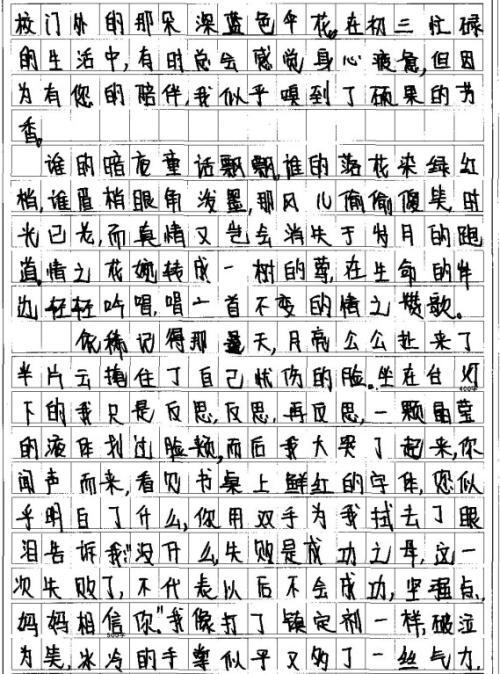 校门外的那朵深蓝色伞花。在初三忙碌
的生活中,有时总会感觉身心疲惫,但因
为有您的陪伴,我似乎嗅到了硕果的芳
香。
谁的暗夜童话飘飘,谁的落花染绿红
梢,谁眉梢眼角泼墨,那风儿偷偷傻笑,时
光已老,而真情又岂会消失于岁月的跑
道。情之花婉转成一树的莺,在生命的畔
边轻轻吟唱,唱一首不变的情之赞歌。
依稀记得那是天,月亮公公赴来了
半片云掩住了自己忧伤的脸。坐在台灯
下的我只是反思,反思,再反思,一颗晶莹
的液体划过脸颊,而后我大哭了起来,你
闻声而来,看见书桌上鲜红的字体,您似
乎明白了什么,你用双手为我拭去了眼
泪告诉我:"没什么,失败是成功之母,这一
次失败了,不代表以后不会成功,坚强点,
妈妈相信你。"我像打了镇定剂一样,破泣
为笑,冰冷的手掌似乎又多了一丝气力.